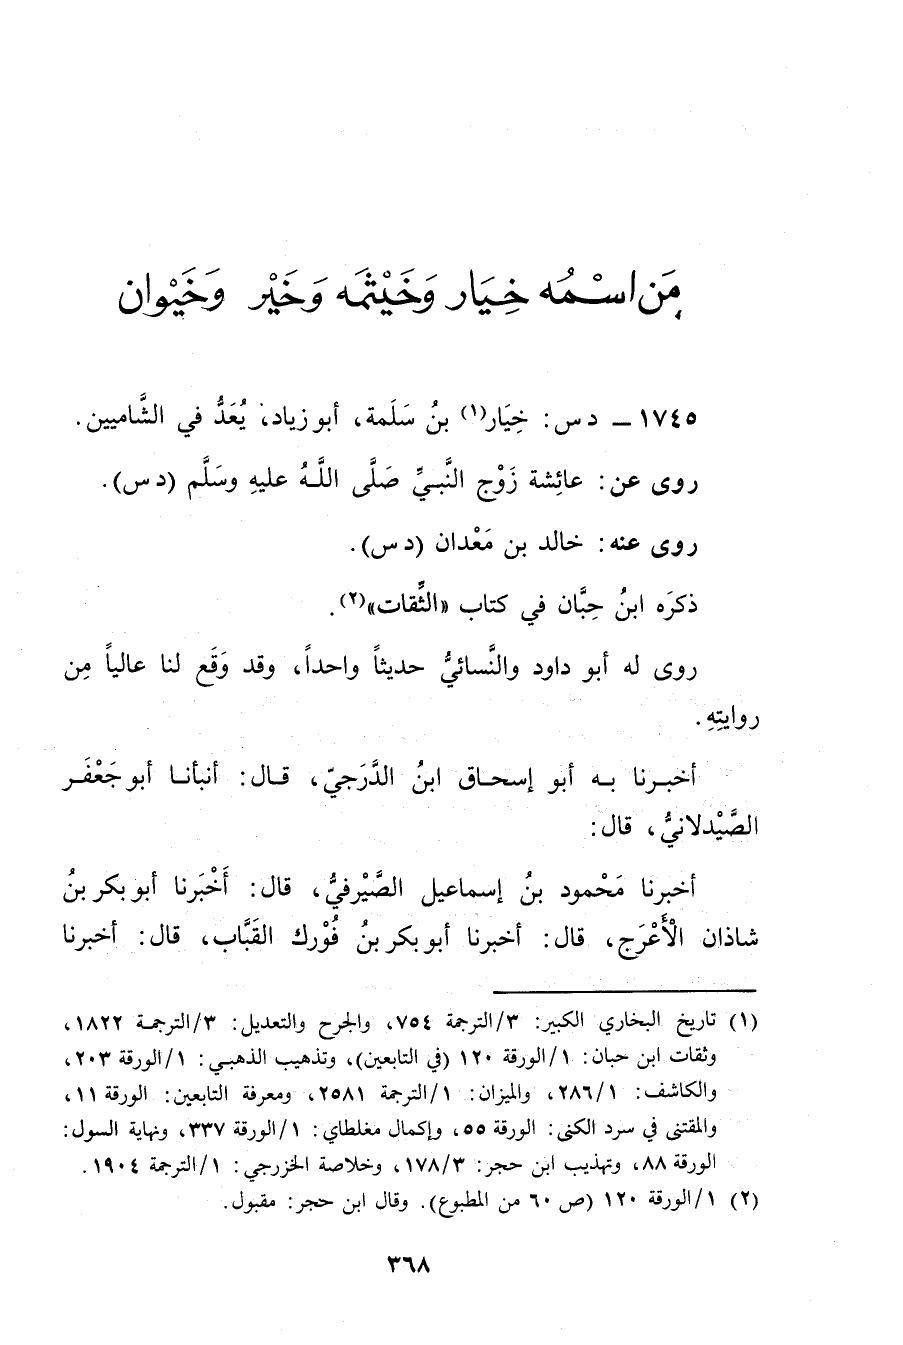 مَن اسْمُه خِيَار وَخَيْثَمَه وَخَيْر وَخَيْوان
١٧٤٥ – د س: خِيَار(١) بنُ سَلَمة، أبو زياد، يُعَدُّ في الشَّاميين.
روى عن: عائِشة زَوْج النَّبيِّ صَلَّى اللَّهُ عليهِ وسَلَّم (د س).
روى عنه: خالد بن مَعْدان (د س).
ذكرَه ابنُ حِبَّان في كتاب «الثِّقات»(٢).
روى له أبو داود والنَّسائيُّ حديثاً واحداً، وقد وَقَع لنا عالياً مِن
روايتِهِ.
أخبرنا به أبو إسحاق ابنُ الدَّرَجيّ، قال: أنبأنا أبو جَعْفَر
الصَّيْدلانيُّ، قال:
أخبرنا مَحْمود بنُ إسماعيل الصَّيْرفيُّ، قال: أَخْبَرنا أبو بكر بنُ
شاذان الْأَعْرَج، قال: أخبرنا أبو بكر بنُ فُوْرك القَبَّاب، قال: أخبرنا
(١) تاريخ البخاري الكبير: ٣/الترجمة ٧٥٤، والجرح والتعديل: ٣/الترجمة ١٨٢٢،
وثقات ابن حبان: ١/الورقة ١٢٠ (في التابعين)، وتذهيب الذهبي: ١/الورقة ٢٠٣،
والكاشف: ١/٢٨٦، والميزان: ١/الترجمة ٢٥٨١، ومعرفة التابعين: الورقة ١١،
والمقتنى في سرد الكنى: الورقة ٥٥، وإكمال مغلطاي: ١/الورقة ٣٣٧، ونهاية السول:
الورقة ٨٨، وتهذيب ابن حجر: ٣/١٧٨، وخلاصة الخزرجي: ١/الترجمة ١٩٠٤.
(٢) ١/الورقة ١٢٠ (ص ٦٠ من المطبوع). وقال ابن حجر: مقبول.
٣٦٨